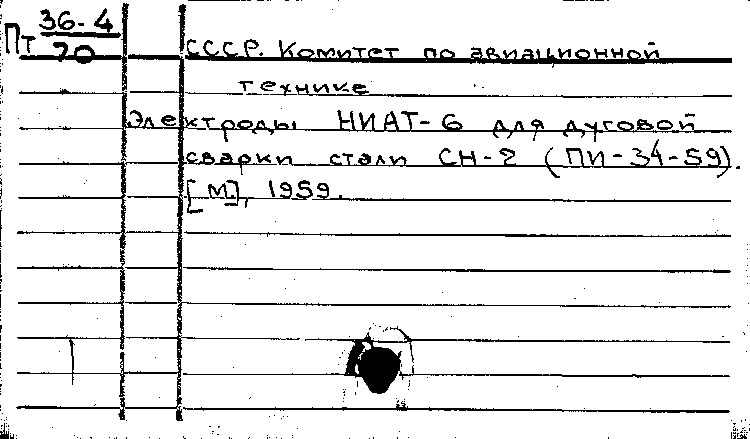 Пт 36-4/70
СССР. Комитет по авиационной
технике
Электроды НИАТ-6 для дуговой
сварки стали СН-2 (ПИ-34-59).
[М.], 1959.